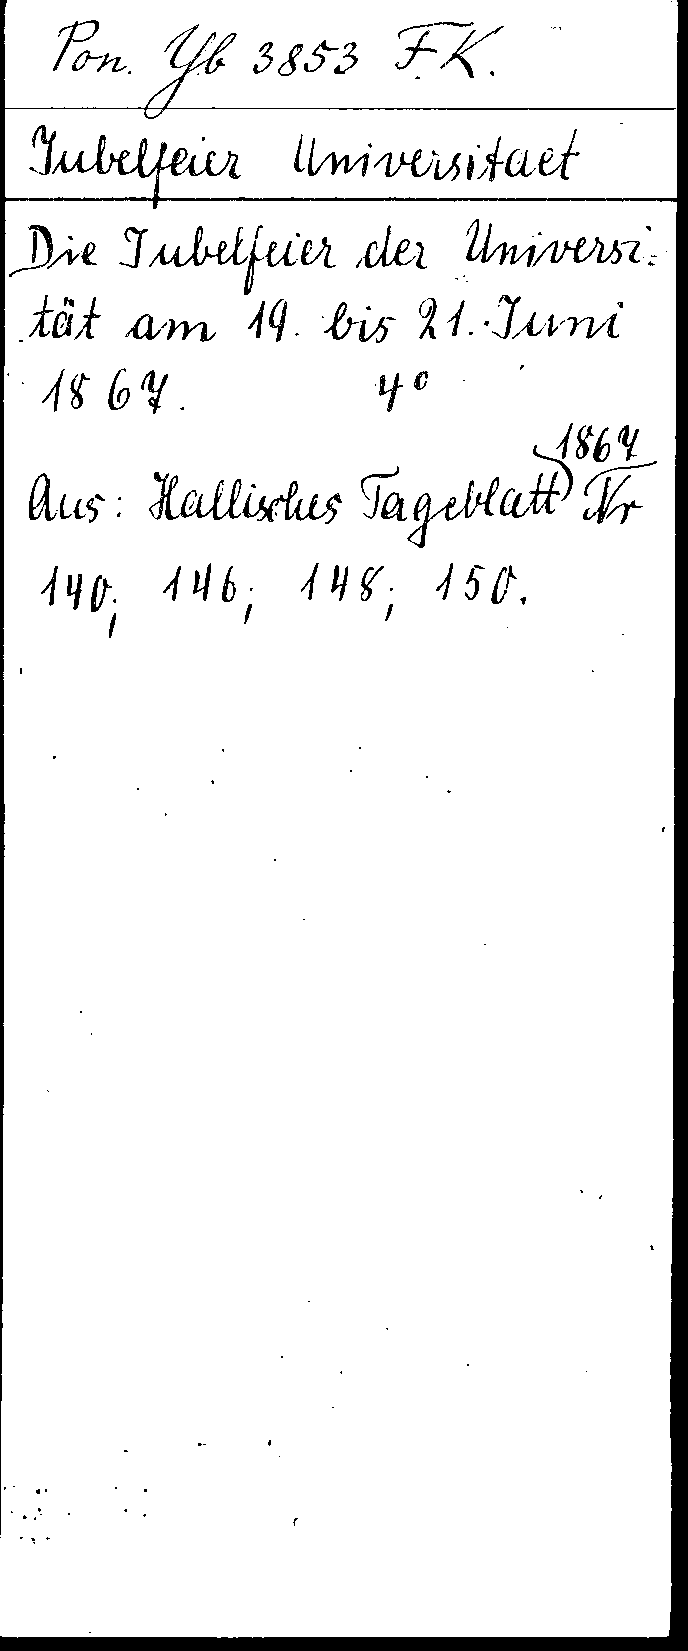 Pon. Yb 3853 FK.
Jubelfeier Universitaet
Die Jubelfeier der Universi-
tät am 19. bis 21. Juni
1867. 4°
Aus: Hallisches Tageblatt 1867 Nr
140; 146; 148; 150.